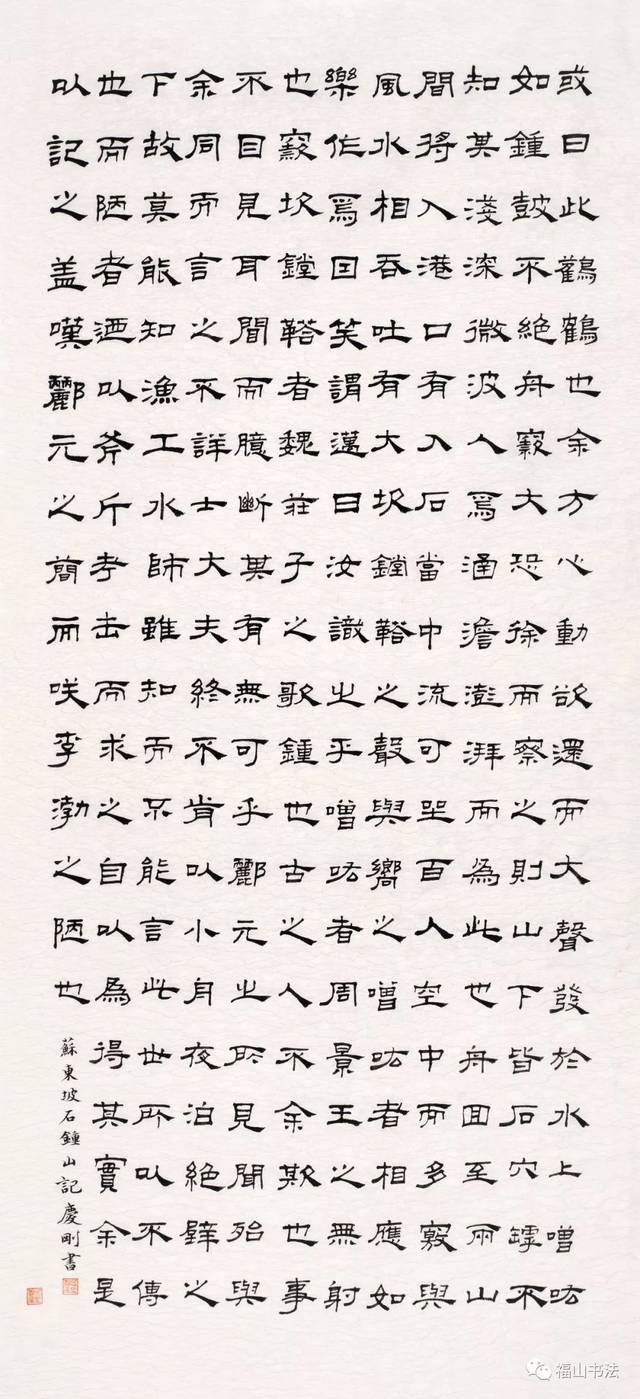 或曰此鸛鶴也余方心動欲還而大聲發於水上噌吰
如鍾鼓不絕舟竅大恐徐而察之則山下皆石穴罅不
知其淺深微波人焉涵澹澎湃而為此也舟囬至兩山
間將入港口有入石當中流可坐百人空中而多竅與
風水相吞吐有大坎鏜鞳之聲與嚮之噌吰者相應如
樂作焉囙笑謂邁曰汝識之乎噌吰者周景王之無射
也竅坎鏜鞳者魏莊子之歌鍾也古之人不余欺也事
不目見耳間而臆斷其有無可乎酈元之所見聞殆與
余同而言之不詳士大夫終不肯以小舟夜泊絕壁之
下故莫能知漁工水師雖知而不能言此世所以不傳
也而陋者迺以斧斤考击而求之自以為得其實余是
以記之盖嘆酈元之簡而咲李渤之陋也
蘇東坡石鍾山記慶剛書
福山书法